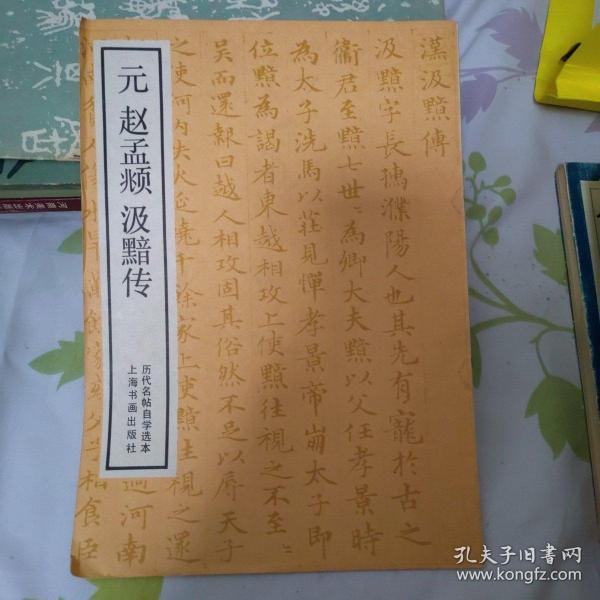 元 赵孟𫖯 汲黯传
历代名帖自学选本
上海书画出版社
漢汲黯傳
汲黯字長孺濮陽人也其先有寵於古之
衞君至黯七世〻為卿大夫黯以父任孝景時
為太子洗馬以莊見憚孝景帝崩太子即
位黯為謁者東越相攻上使黯往視之不至〻
吳而還報曰越人相攻固其俗然不足以辱天子
之使河内失火延燒千餘家上使黯往視之還
過河南
相食臣
孔夫子旧书网
www.kongfz.com